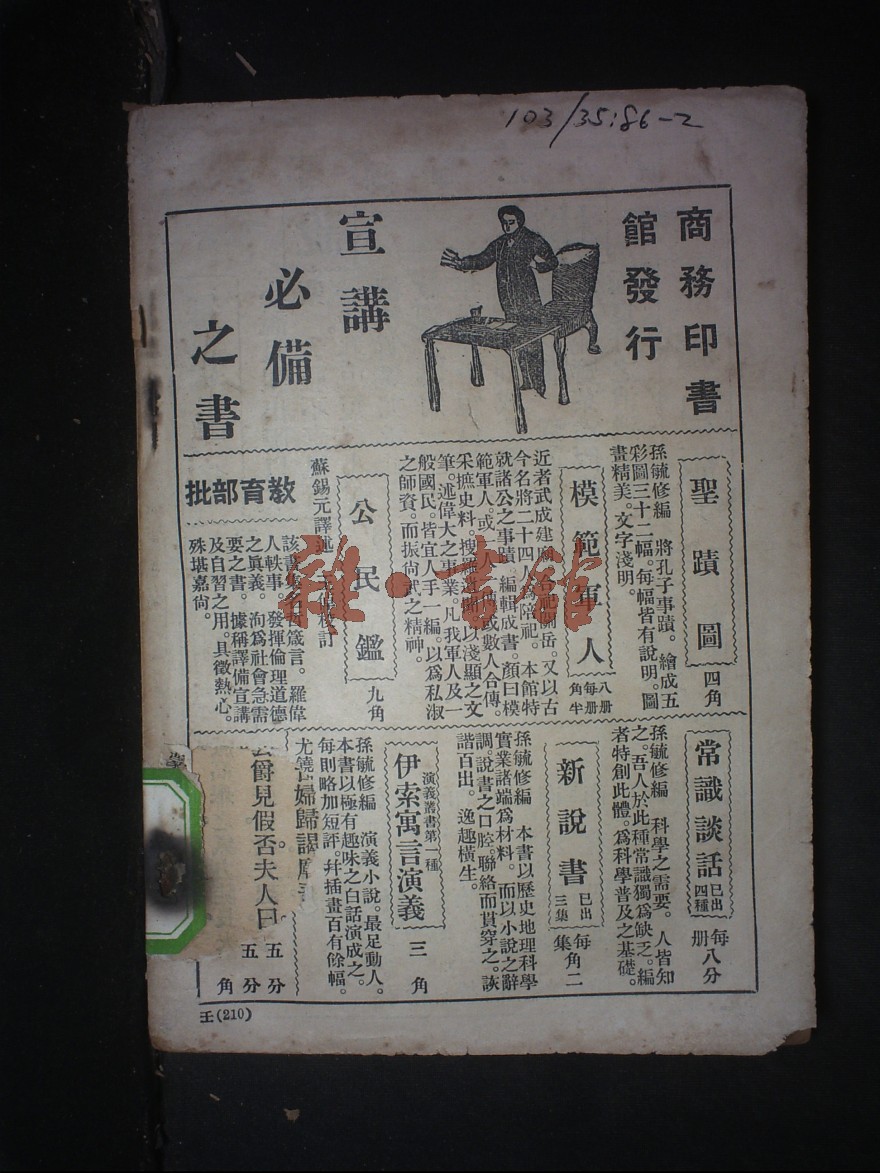 103/35:86-2
商務印書
館發行
宣講
必備
之書
聖蹟圖
四角
孫毓修編　將孔子事蹟。繪成五
彩圖三十二幅。每幅皆有說明。圖
畫精美。文字淺明。
模範軍人
八册
每册
角半
近者武成建廟。合祀關岳。又以古
今名將二十四人為陪祀。本館特
就諸公之事蹟。編輯成書。顏曰模
範軍人。或一人一册或數人合傳。
采摭史料。搜羅以淺顯之文
筆。述偉大之事業。凡我軍人及一
般國民。皆宜人手一編。以為私淑
之師資。而振尙武之精神。
公民鑑
九角
蘇錫元譯述　校訂
教育部批
該書集名箴言。羅偉
人軼事。發揮倫理道德
之眞義。洵為社會急需
要之書。據稱譯備宣講
及自習之用。具徵熱心。
殊堪嘉尙。
常識談話
已出
四種
每册
八分
孫毓修編　科學之需要。人皆知
之。吾人於此種常識獨為缺乏。編
者特創此體。為科學普及之基礎。
新說書
已出
三集
每集
角二
孫毓修編　本書以歷史地理科學
實業諸端為材料。而以小說之辭
調。說書之口腔。聯絡而貫穿之。詼
諧百出。逸趣橫生。
演義叢書第一種
伊索寓言演義
三角
孫毓修編　演義小說。最足動人。
本書以極有趣味之白話演成之。
每則略加短評。幷插畫百有餘幅。
婦歸
五分
爵兒假否夫人
五分
角
王(210)
雜·書館